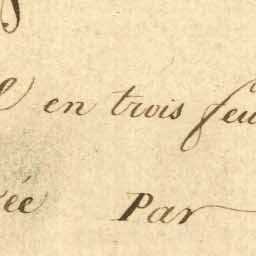 en trois feu
ée Par